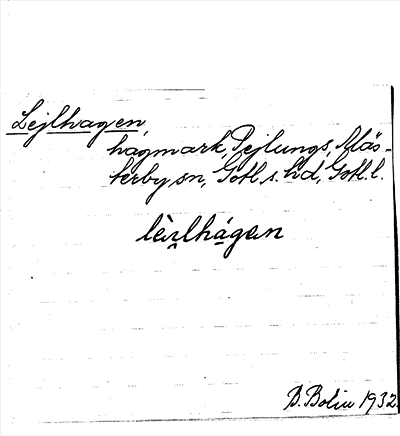 Lejlhagen,
hagmark, Pejlungs, Mäs-
terby sn, Gotl. s. hd, Gotl. l.
lèi̯lhágan
B. Bolin 1932